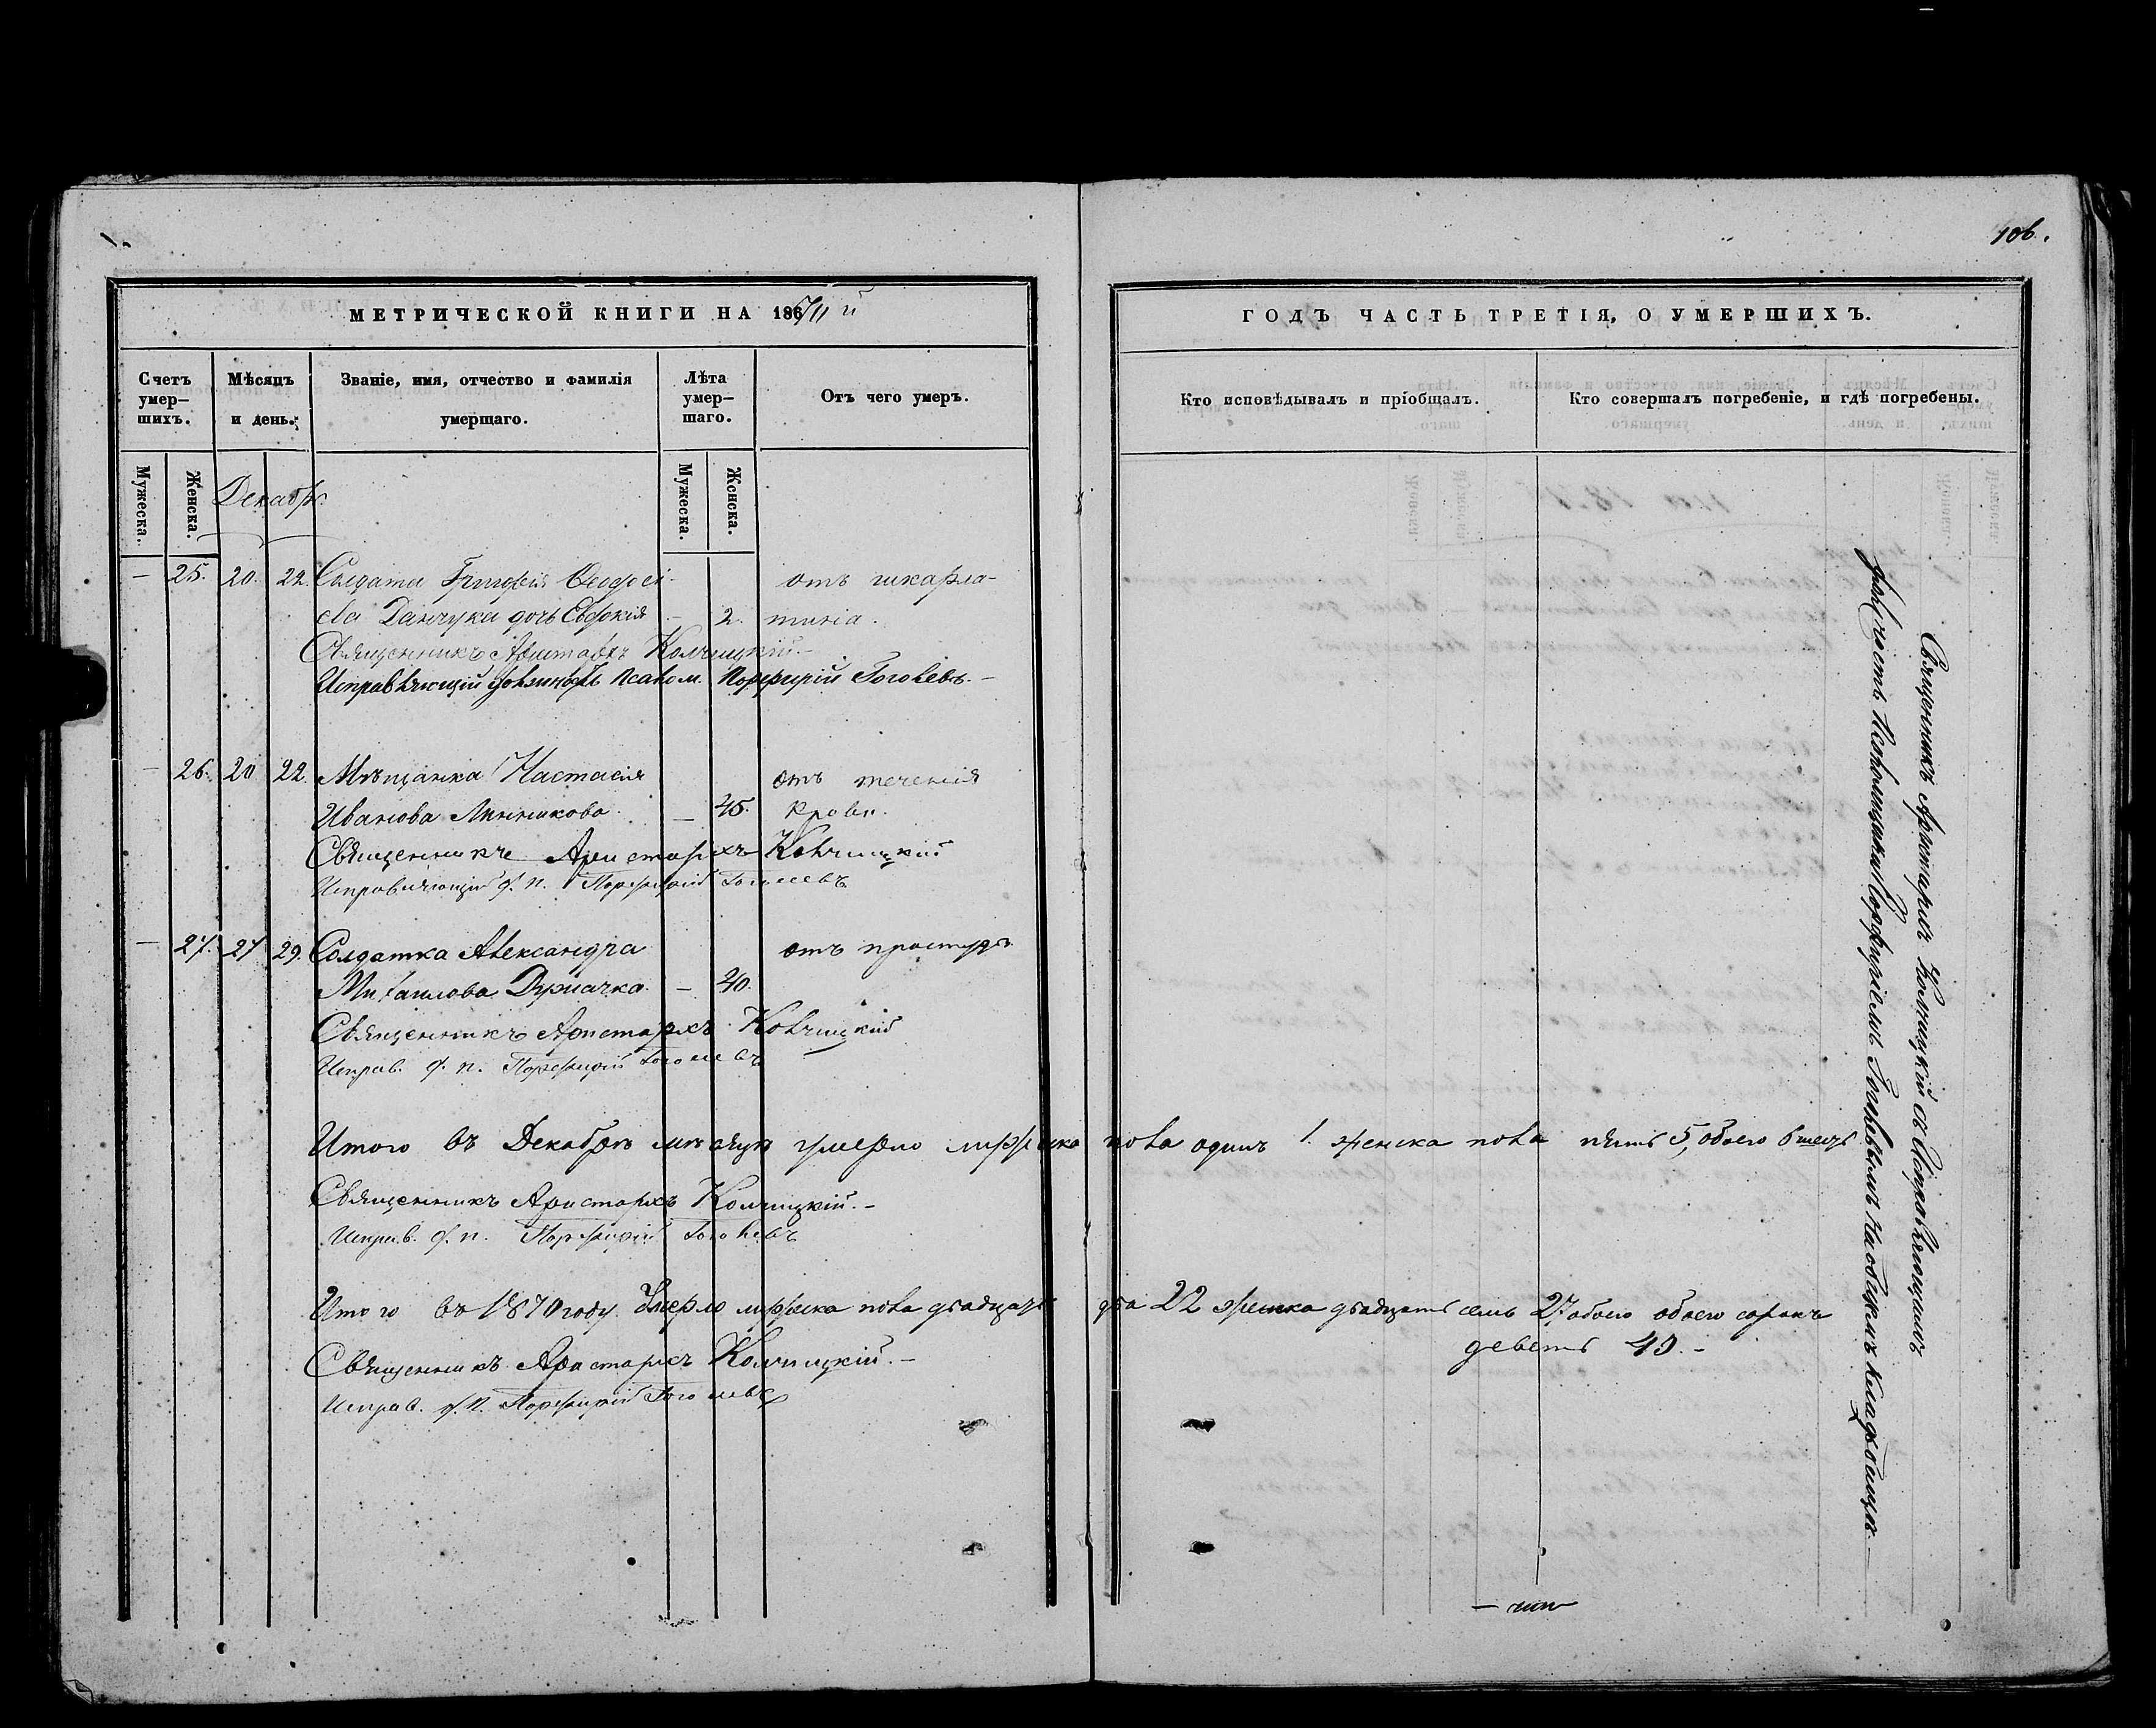 106.
МЕТРИЧЕСКОЙ КНИГИ НА 186
ГОДЪ ЧАСТЬ ТРЕТІЯ, О УМЕРШИХЪ.
Счетъ умер– шихъ.
Мѣсяцъ и день.
Званіе, имя, отчество и фамилія умершаго.
Лѣта умер– шаго.
Отъ чего умеръ.
Кто исповѣдывалъ и пріобщалъ.
Кто совершалъ погребеніе, и гдѣ погребены.
Мужеска.
Женска.
Мужеска.
Женска.
Декабр.
— 25. 20. 22. Солдата Григорія отъ шкарла-
ева Данчука дочь Евдокія — 2. тинія.
Священникъ Аристархъ Колчицкій.—
Исправляющій должность Псалом. Порфирій Гоголевъ.—
— 26. 20 22. Мѣщанка Настасія отъ теченія
Иванова Линникова — 45. крови.
Священникъ Аристархъ Колчицкій
Исправляющій д. п. Порфирій Гоголевъ
— 27. 27 29. Солдатка Александра отъ простуды
Михаилова — 40.
Священникъ Аристархъ Колчицкій
Исправ. д. п. Порфирій Гоголевъ
Итого въ Декабрѣ мѣсяцѣ умерло мужеска пола одинъ 1. женска пола пять 5, обоего 6
Священникъ Аристархъ Колчицкій.—
Исправ. д. п. Порфирій Гоголевъ
Итого въ 1870 году Умерло мужеска пола двадцать два 22 женска двадцать семь 27 обоего обоего сорокъ
деветь 49.—
Священникъ Аристархъ Колчицкій.—
Исправ. д. п. Порфирій Гоголевъ
Священникъ Аристархъ Колчицкій съ Исправляющимъ
должность Порфиріемъ Гоголевымъ на кладбищѣ.—